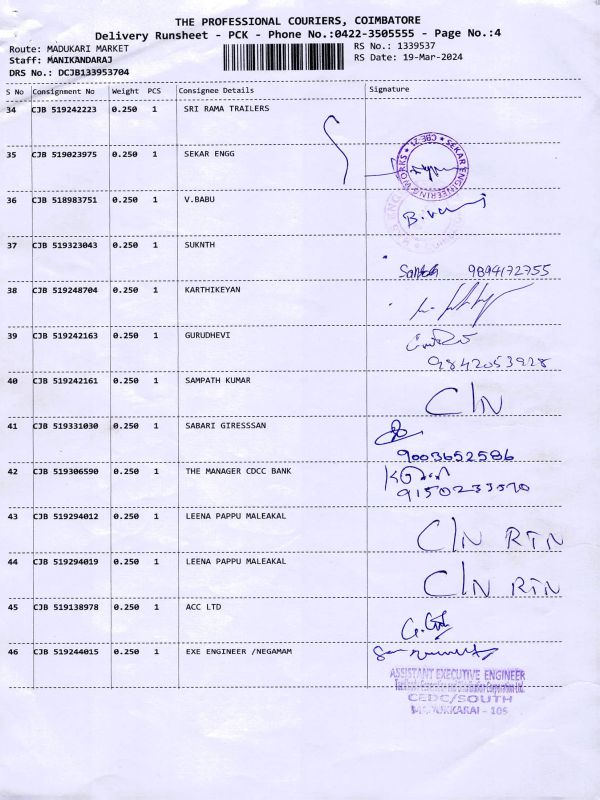 THE PROFESSIONAL COURIERS, COIMBATORE
Delivery Runsheet - PCK - Phone No.:0422-3505555 - Page No.:4
Route: MADUKARI MARKET RS No.: 1339537
Staff: MANIKANDARAJ RS Date: 19-Mar-2024
DRS No.: DCJB133953704
S No Consignment No Weight PCS Consignee Details Signature
34 CJB 519242223 0.250 1 SRI RAMA TRAILERS
35 CJB 519023975 0.250 1 SEKAR ENGG
SEKAR ENGINEERING WORKS ★ CBE-21 ★
36 CJB 518983751 0.250 1 V.BABU
37 CJB 519323043 0.250 1 SUKNTH
9894172755
38 CJB 519248704 0.250 1 KARTHIKEYAN
39 CJB 519242163 0.250 1 GURUDHEVI
9842053928
40 CJB 519242161 0.250 1 SAMPATH KUMAR C/N
41 CJB 519331030 0.250 1 SABARI GIRESSSAN
9003652586
42 CJB 519306590 0.250 1 THE MANAGER CDCC BANK
43 CJB 519294012 0.250 1 LEENA PAPPU MALEAKAL C/N RTN
44 CJB 519294019 0.250 1 LEENA PAPPU MALEAKAL C/N RTN
45 CJB 519138978 0.250 1 ACC LTD
46 CJB 519244015 0.250 1 EXE ENGINEER /NEGAMAM
ASSISTANT EXECUTIVE ENGINEER
CEDC/SOUTH
MADUKKARAI - 105